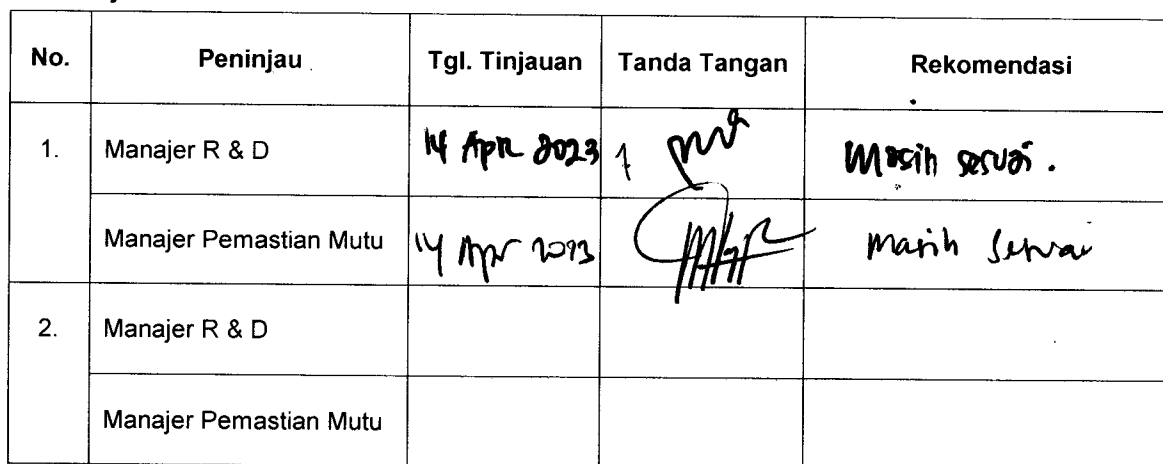 No. Peninjau Tgl. Tinjauan Tanda Tangan Rekomendasi
1. Manajer R & D 14 Apr 2023 Masih sesuai.
Manajer Pemastian Mutu 14 Apr 2023 Masih sesuai
2. Manajer R & D
Manajer Pemastian Mutu